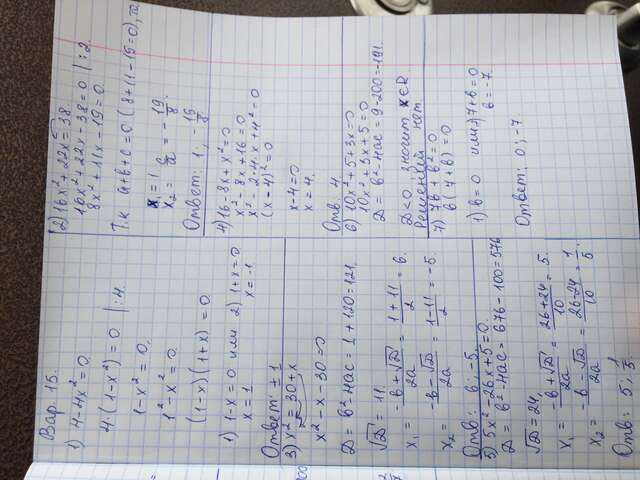 Вар. 15.
1) 4-4x²=0
4·(1-x²)=0 |:4
1-x²=0
1²-x²=0
(1-x)(1+x)=0
1) 1-x=0 или 2) 1+x=0
x=1 x=-1
Ответ: ±1
3) x²=30+x
x²-x-30=0
D=b²-4ac=1+120=121
√D=11.
x₁=(-b+√D)/2a=(1+11)/2=6.
x₂=(-b-√D)/2a=(1-11)/2=-5.
Отв: 6;-5.
5) 5x²-26x+5=0.
D=b²-4ac=676-100=576
√D=24,
x₁=(-b+√D)/2a=(26+24)/10=5.
x₂=(-b-√D)/2a=(26-24)/10=1/5.
Отв: 5; 1/5.
2) 16x²+22x=38.
16x²+22x-38=0 |:2.
8x²+11x-19=0
Т.к a+b+c=0 (8+11-19=0), то
x₁=1
x₂=c/a=-19/8.
Ответ: 1; -19/8
4) 16-8x+x²=0
x²-8x+16=0
x²-2·4·x+4²=0
(x-4)²=0
x-4=0
x=4.
Отв. 4
6) 10x²+5+3x=0
10x²+3x+5=0
D=b²-4ac=9-200=-191
D<0, значит x∈R.
Решений нет.
7) 7b+b²=0
b(7+b)=0
1) b=0 или 2) 7+b=0
b=-7.
Ответ: 0;-7.